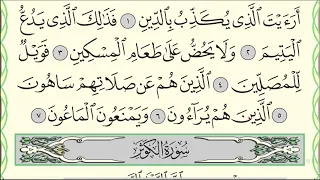 أَرَءَيْتَ ٱلَّذِى يُكَذِّبُ بِٱلدِّينِ ١ فَذَٰلِكَ ٱلَّذِى يَدُعُّ
ٱلْيَتِيمَ ٢ وَلَا يَحُضُّ عَلَىٰ طَعَامِ ٱلْمِسْكِينِ ٣ فَوَيْلٌ
لِّلْمُصَلِّينَ ٤ ٱلَّذِينَ هُمْ عَن صَلَاتِهِمْ سَاهُونَ
٥ ٱلَّذِينَ هُمْ يُرَآءُونَ ٦ وَيَمْنَعُونَ ٱلْمَاعُونَ ٧
سُورَةُ الكَوثَر